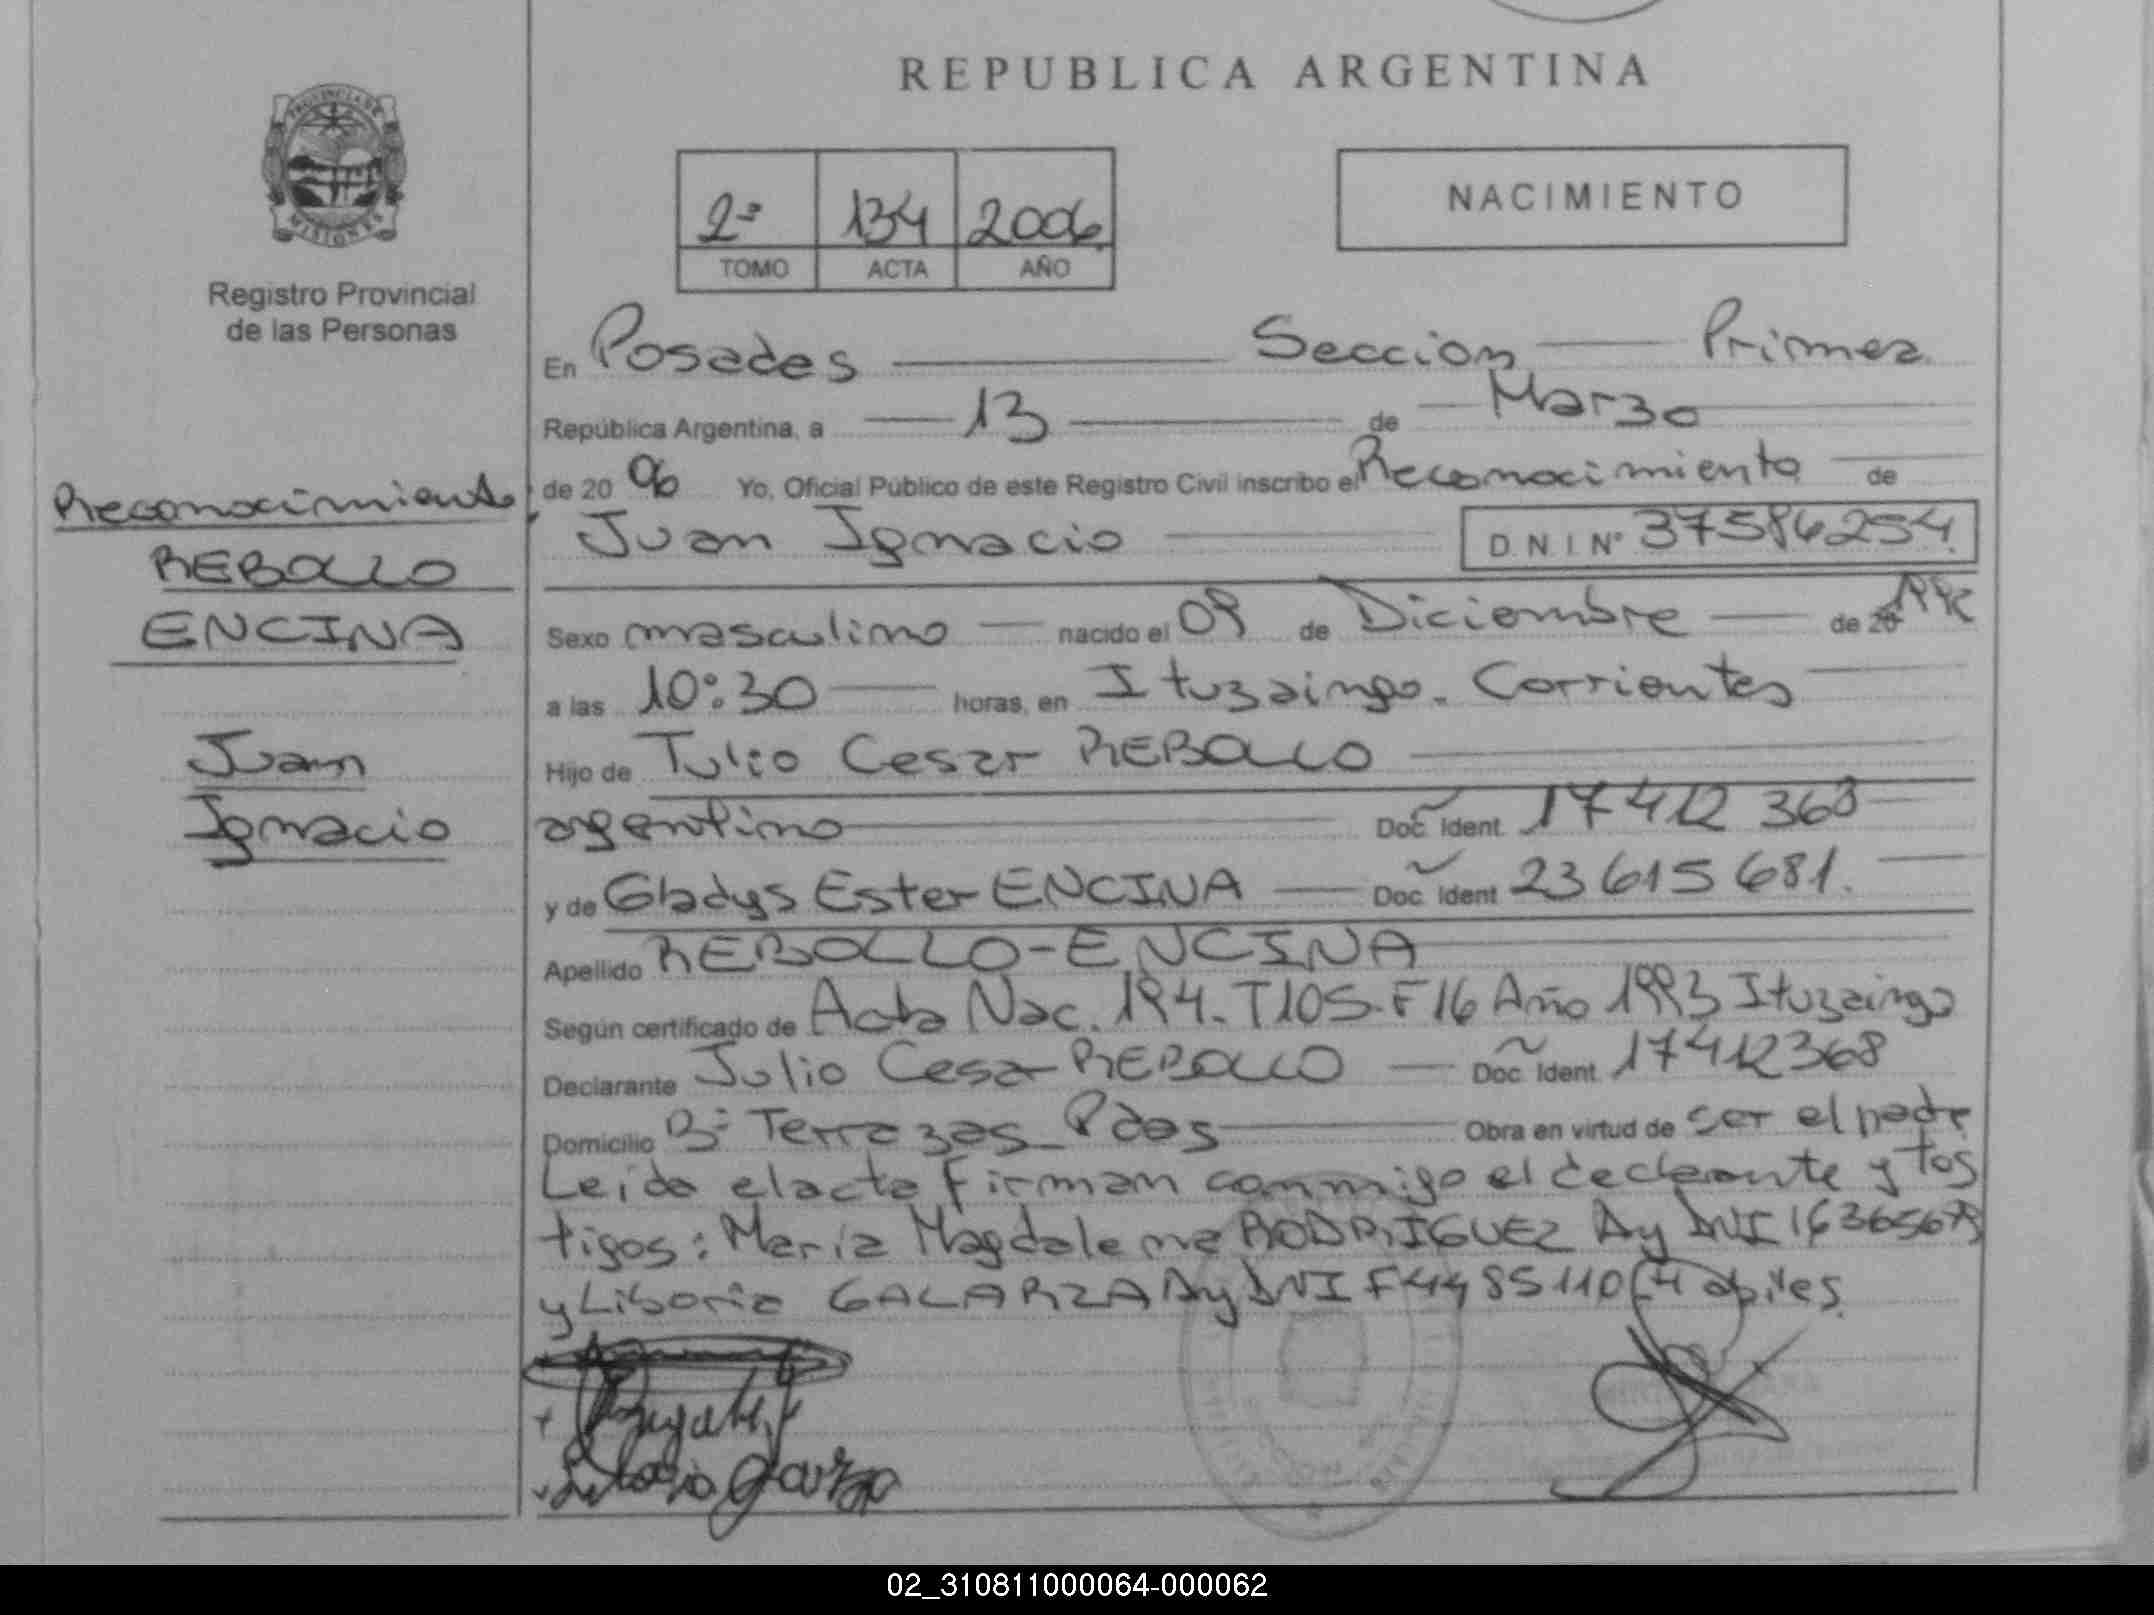 REPUBLICA ARGENTINA
PROVINCIA DE
MISIONES
Registro Provincial
de las Personas
2º 134 2006
TOMO ACTA AÑO
NACIMIENTO
En Posadas Seccion Primera
República Argentina, a 13 de Marzo
de 20 06 Yo, Oficial Público de este Registro Civil inscribo el Reconocimiento de
Juan Ignacio D.N.I.Nº 37586254
Sexo masculino nacido el 09 de Diciembre de 20 1992
a las 10:30 horas, en Ituzaingo. Corrientes
Hijo de Julio Cesar REBOLLO
argentino Doc. Ident. 17412368
y de Gladys Ester ENCINA Doc. Ident 23615681.
Apellido REBOLLO-ENCINA
Según certificado de Acta Nac. 194. T10S. F16 Año 1993 Ituzaingo
Declarante Julio Cesar REBOLLO Doc. Ident. 17412368
Domicilio Bº Terrazas_Pdas Obra en virtud de ser el padre
Leida el acta firman conmigo el declarante y tes
tigos: Maria Magdalena RODRIGUEZ Ay DNI 16365673
y Liboria GALARZA Ay DNI F4485110
Reconocimiento
REBOLLO
ENCINA
Juan
Ignacio
02_310811000064-000062